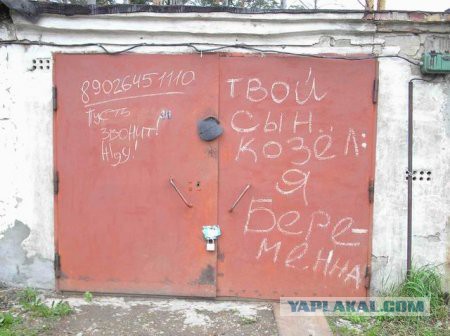 89026451110
Пусть
звонит!
Жду!
ТВОЙ
СЫН
КОЗЁЛ:
Я
Бере-
менна
YAPLAKAL.COM